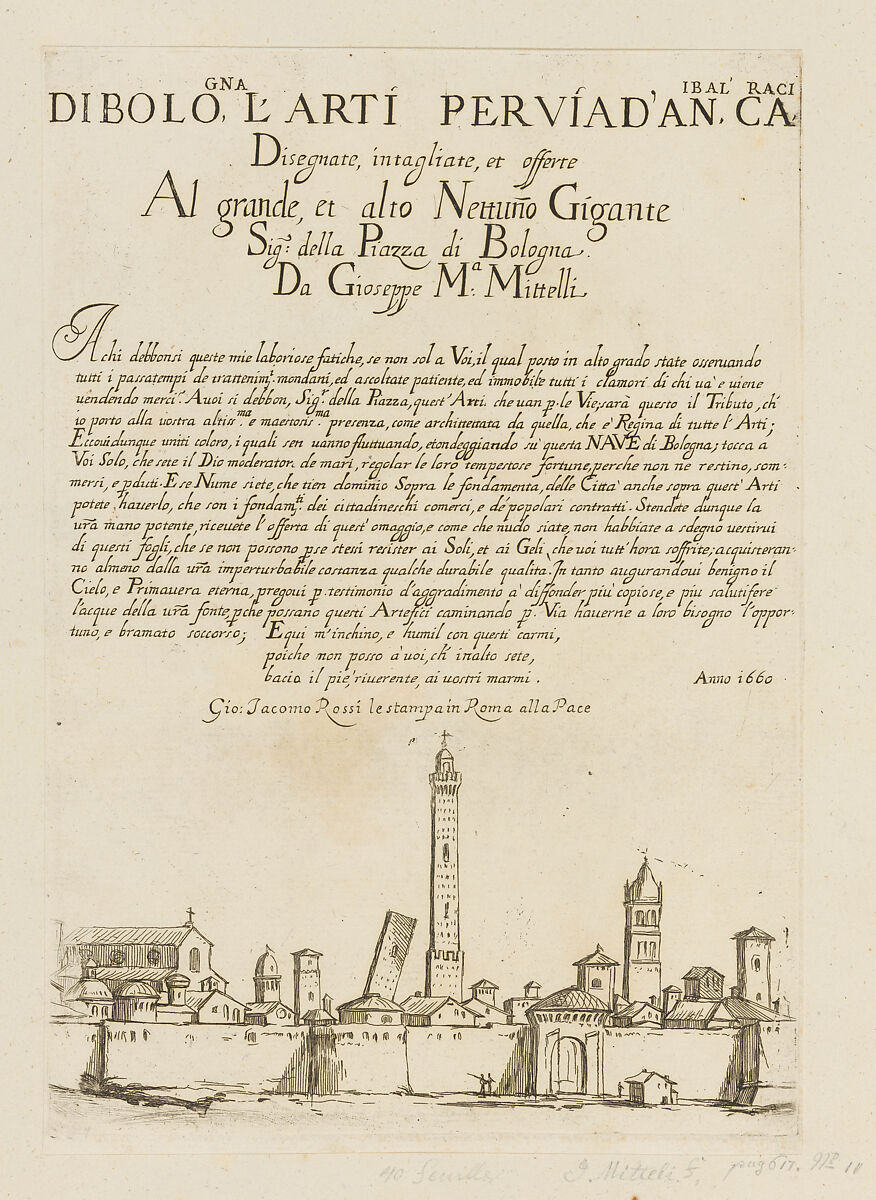 GNA IBAL' RACI
DI BOLO, L' ARTÍ PER VÍA D'AN, CA
Disegnate, intagliate, et offerte
Al grande, et alto Nettuño Gigante
Sigr: della Piazza di Bologna.
Da Gioseppe Ma. Mittelli
A chi debbonsi queste mie laboriose fatiche, se non sol a Voi, il qual posto in alto grado state osseruando
tutti i passatempi de trattenimti. mondani, ed ascoltate patiente, ed immobile tutti i clamori di chi uà e uiene
uendendo merci? A uoi si debbon, Sigr. della Piazza, quest' Arti. che uan p. le Vie; sarà questo il Tributo, ch'
io porto alla uostra altisma. e maestosisma. presenza, come architettata da quella, che è Regina di tutte l'Arti;
Eccoui dunque uniti coloro, i quali sen uanno fluttuando, et ondeggiando sù questa NAVE di Bologna; tocca a
Voi Solo, che sete il Dio moderator. de mari, regolar le loro tempestose fortune, perche non ne restino, som-
mersi, e pduti. E se Nume siete, che tien dominio Sopra le fondamenta, delle Città anche sopra quest' Arti
potete hauerlo, che son i fondamti. dei cittadineschi comerci, e dé popolari contratti. Stendete dunque la
ura mano potente, riceuete l'offerta di quest' omaggio, e come che nudo siate, non habbiate a sdegno uestirui
di questi fogli, che se non possono pse stessi resister ai Soli, et ai Geli, che uoi tutt'hora soffrite; acquisteran-
no almeno dalla ura imperturbabile costanza qualche durabile qualità. In tanto augurandoui benigno il
Cielo, e Primauera eterna, pregoui p. testimonio d'aggradimento à diffonder più copiose, e più salutifere
l'acque della ura fonte, pche possano questi Artefici caminando p. Via hauerne a loro bisogno l'oppor-
tuno, e bramato soccorso; E qui m'inchino, e humil con questi carmi,
poiche non posso à uoi, ch' inalto sete,
bacio il piè, riuerente, ai uostri marmi. Anno 1660
Gio: Iacomo Rossi le stampa in Roma alla Pace
40 feuilles J. Mitteli f. pag 617. No 10